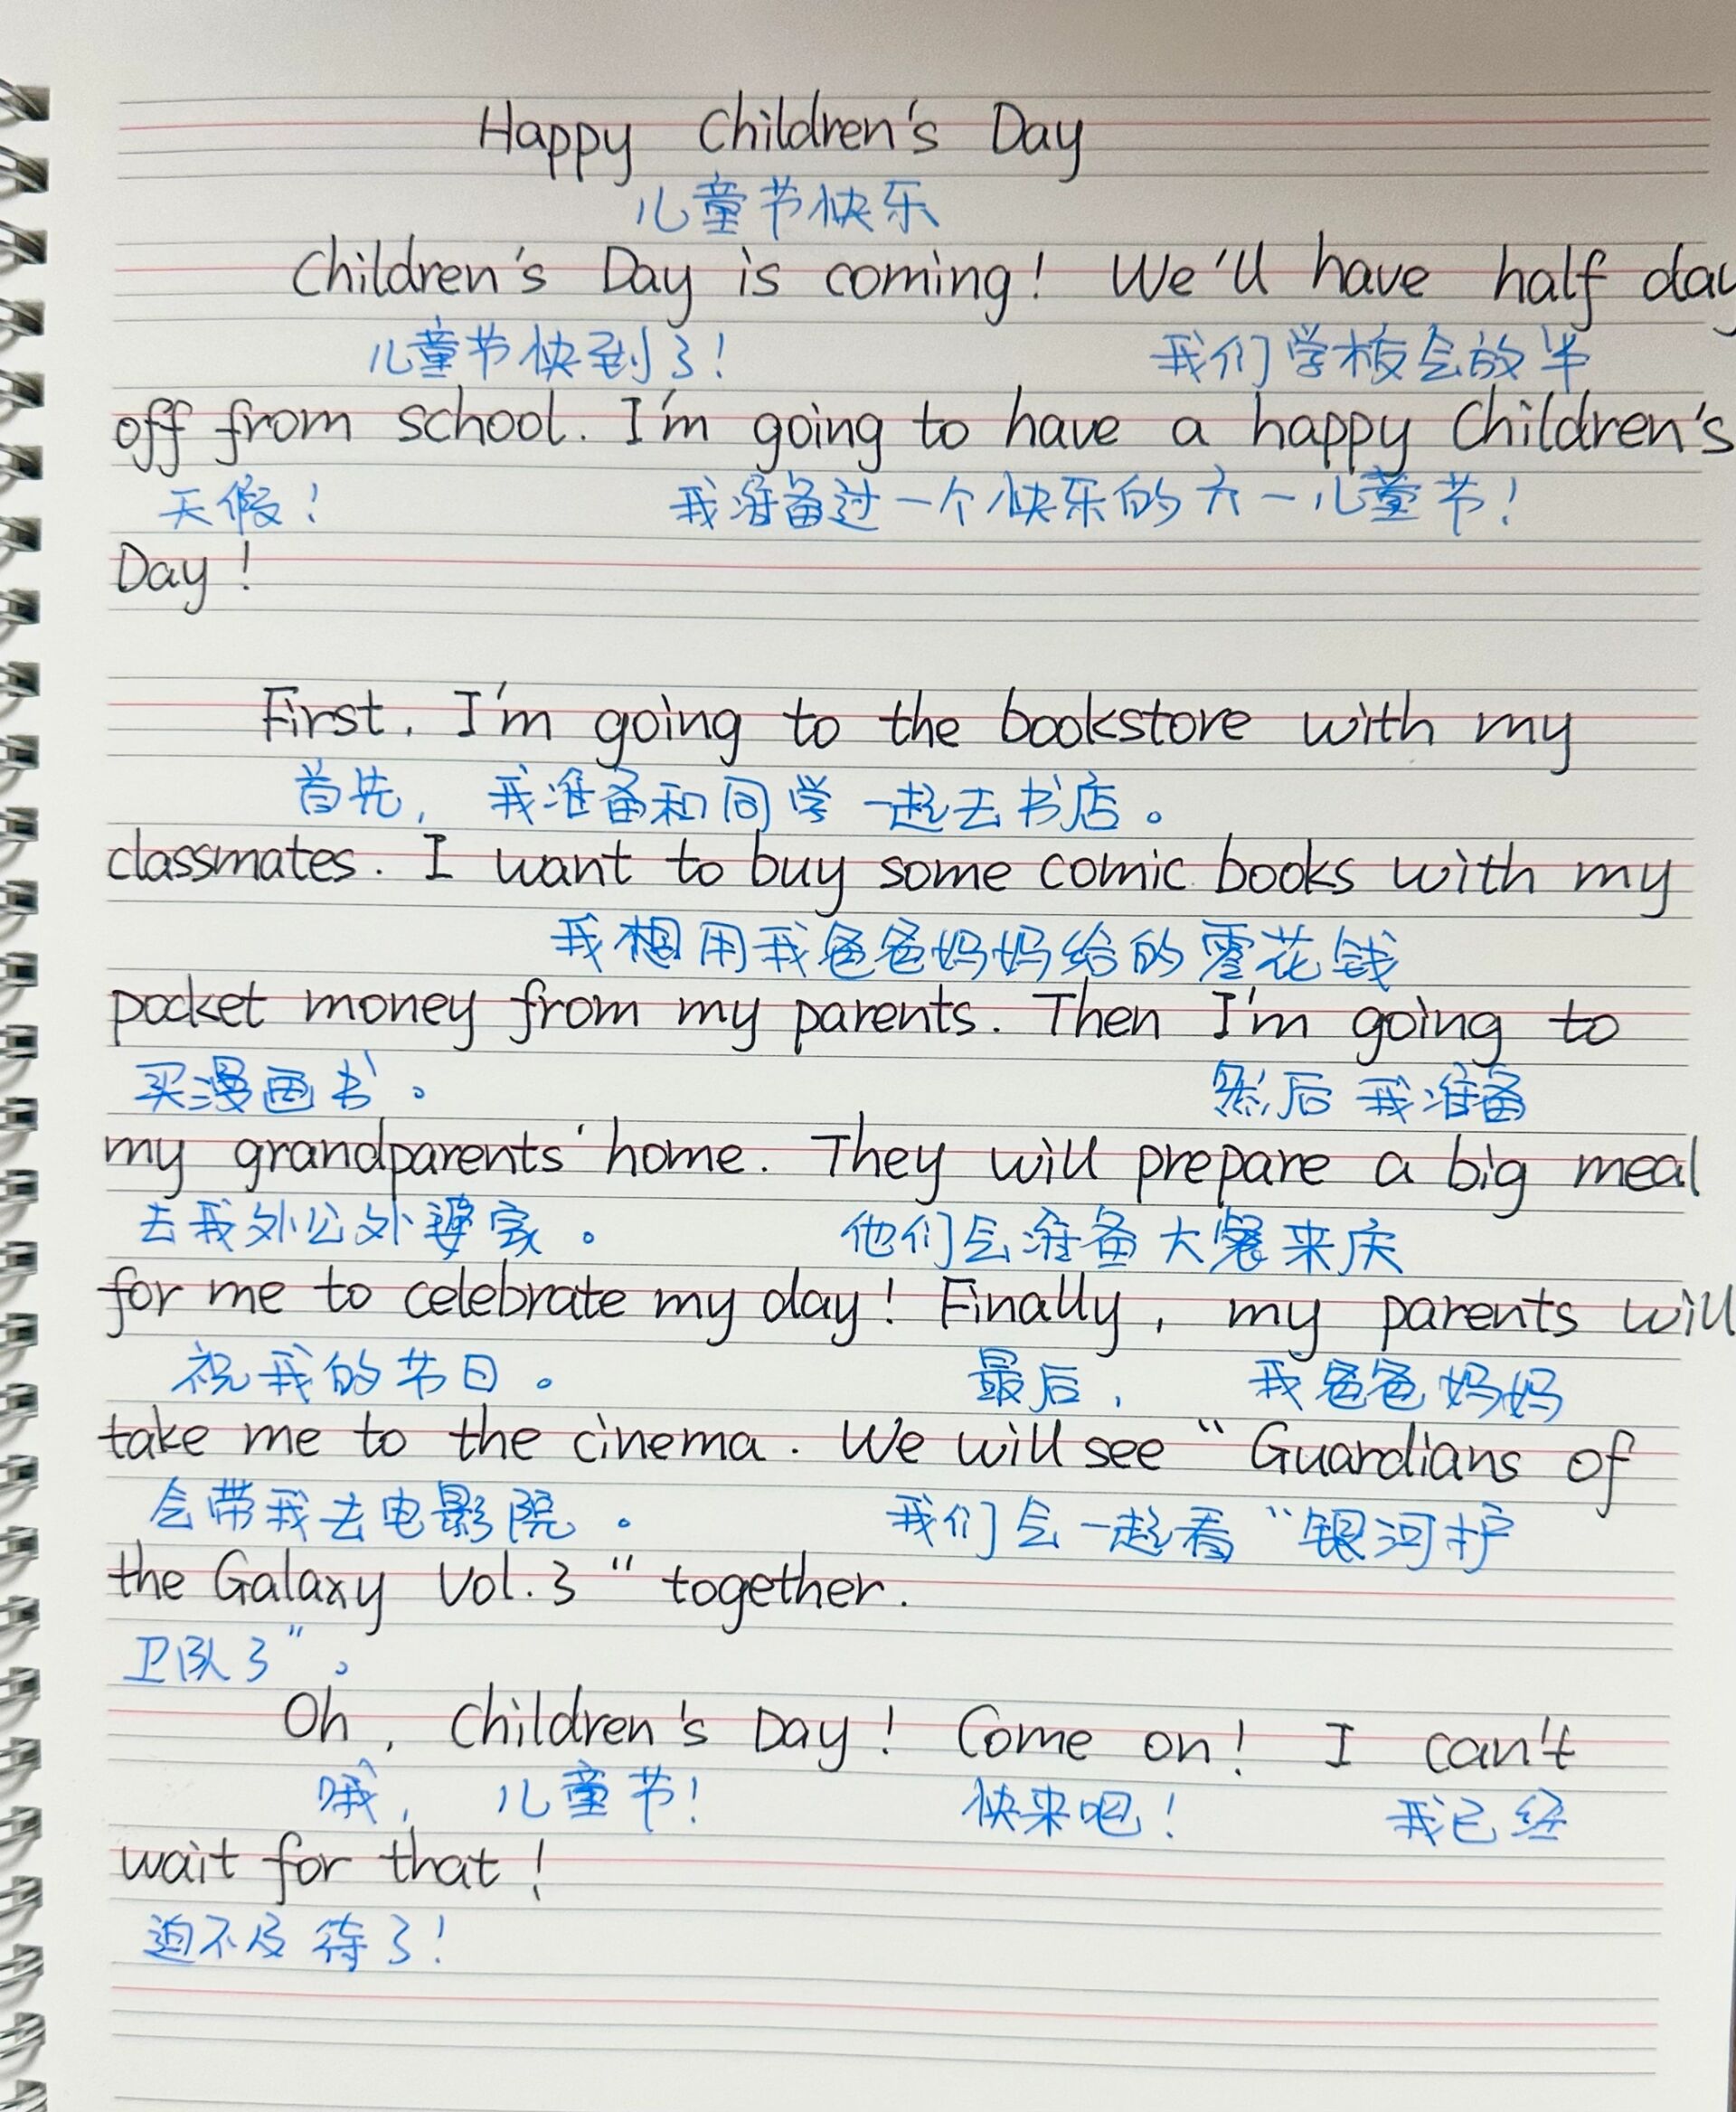 Happy Children's Day
儿童节快乐
Children's Day is coming! We'll have half day
儿童节快到了! 我们学校会放半
off from school. I'm going to have a happy Children's
天假! 我准备过一个快乐的六一儿童节!
Day!
First. I'm going to the bookstore with my
首先, 我准备和同学一起去书店。
classmates. I want to buy some comic books with my
我想用我爸爸妈妈给的零花钱
pocket money from my parents. Then I'm going to
买漫画书。 然后我准备
my grandparents' home. They will prepare a big meal
去我外公外婆家。 他们会准备大餐来庆
for me to celebrate my day! Finally, my parents will
祝我的节日。 最后, 我爸爸妈妈
take me to the cinema. We will see "Guardians of
会带我去电影院。 我们会一起看"银河护
the Galaxy Vol.3" together.
卫队3"。
Oh, Children's Day! Come on! I can't
哦, 儿童节! 快来吧! 我已经
wait for that!
迫不及待了!